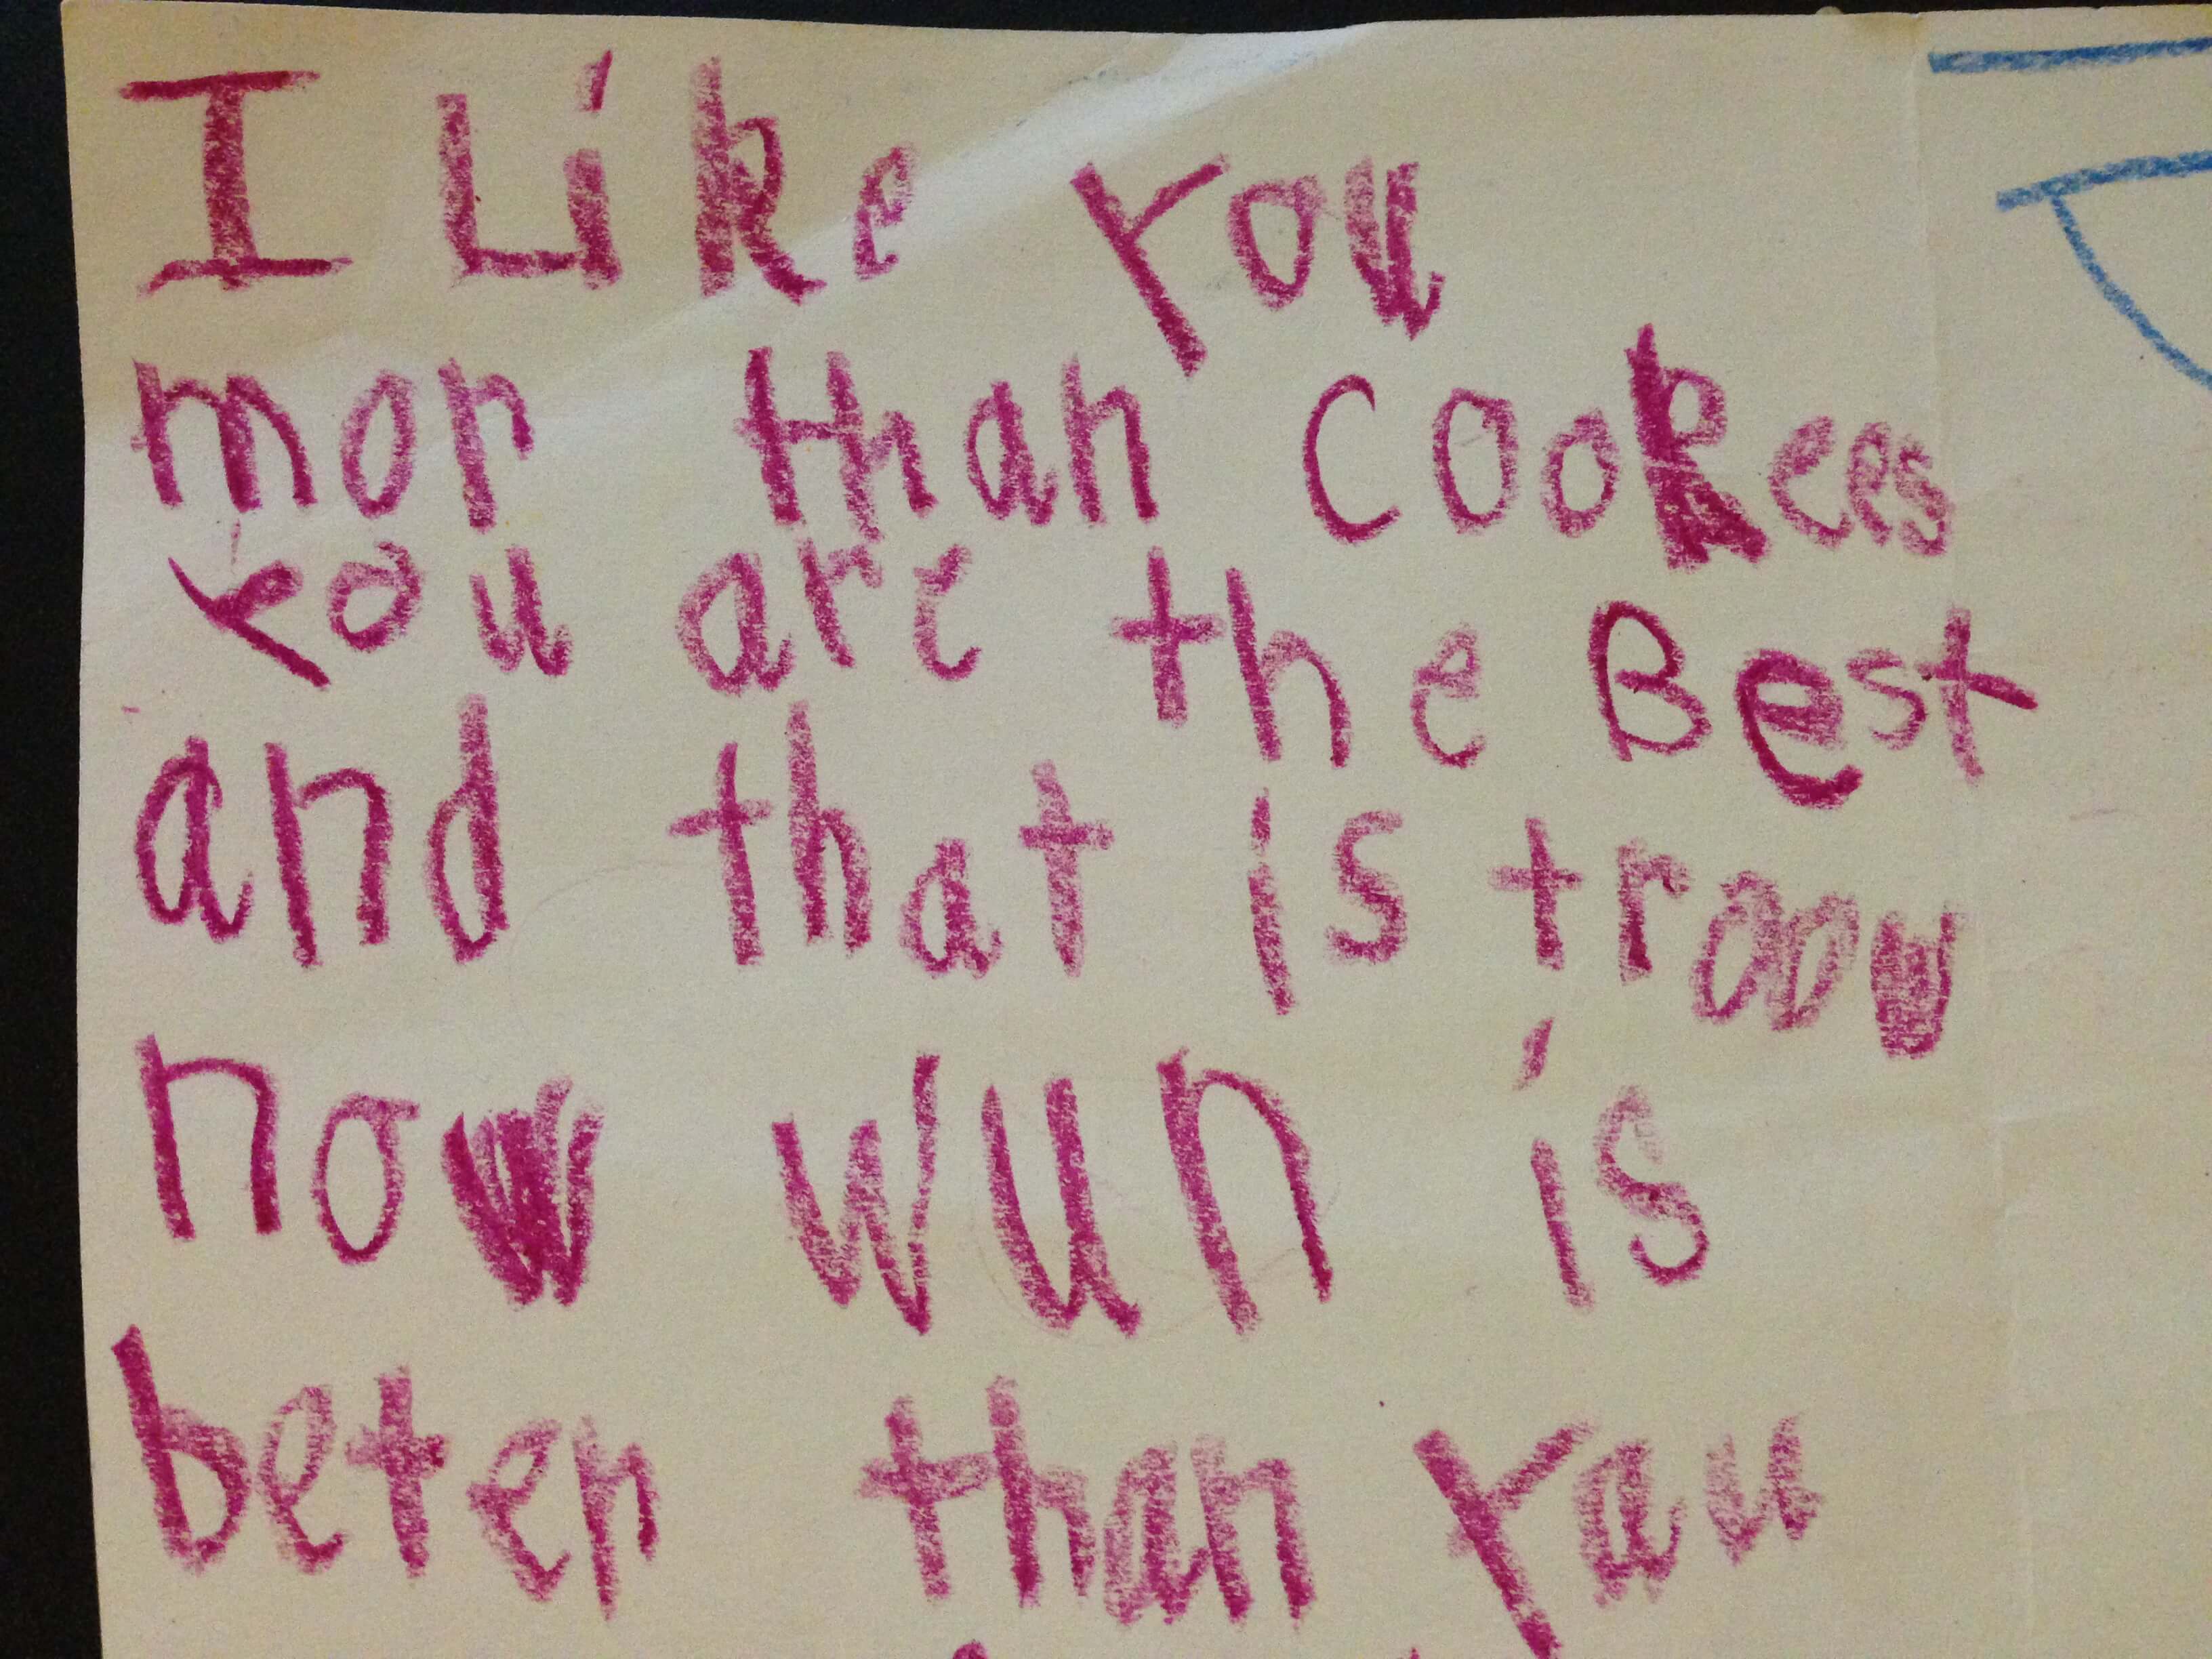 I Like You
mor than cookees
You are the Best
and that is troow
now wun is
beter than You